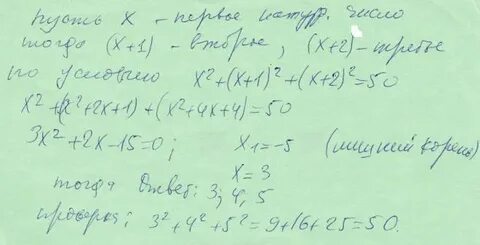 пусть x - первое натур. число
тогда (x+1) - второе, (x+2) - третье
по условию x²+(x+1)²+(x+2)²=50
x²+(x²+2x+1)+(x²+4x+4)=50
3x²+2x-15=0; x₁=-5 (лишний корень)
x=3
тогда Ответ: 3, 4, 5
проверка; 3²+4²+5²=9+16+25=50.